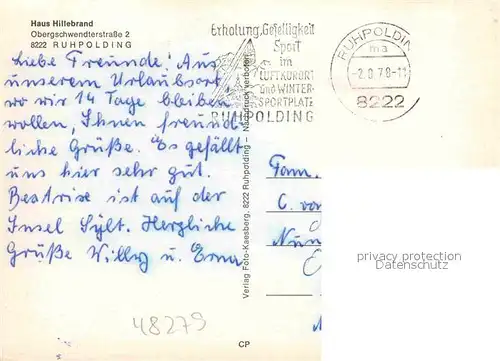 Haus Hillebrand
Obergschwendterstraße 2
8222 RUHPOLDING
Liebe Freunde! Aus
unserem Urlaubsort
wo wir 14 Tage bleiben
wollen, Ihnen freund-
liche Grüße. Es gefällt
uns hier sehr gut.
Beatrise ist auf der
Insel Sylt. Herzliche
Grüße Willy u. Erna
48279
Erholung, Geselligkeit
Sport
im
LUFTKURORT
und WINTER-
SPORTPLATZ
RUHPOLDING
RUHPOLDING
ma
8222
Verlag Foto-Kaesberg, 8222 Ruhpolding – Nachdruck verboten
CP
Fam.
C. von
privacy protection
Datenschutz